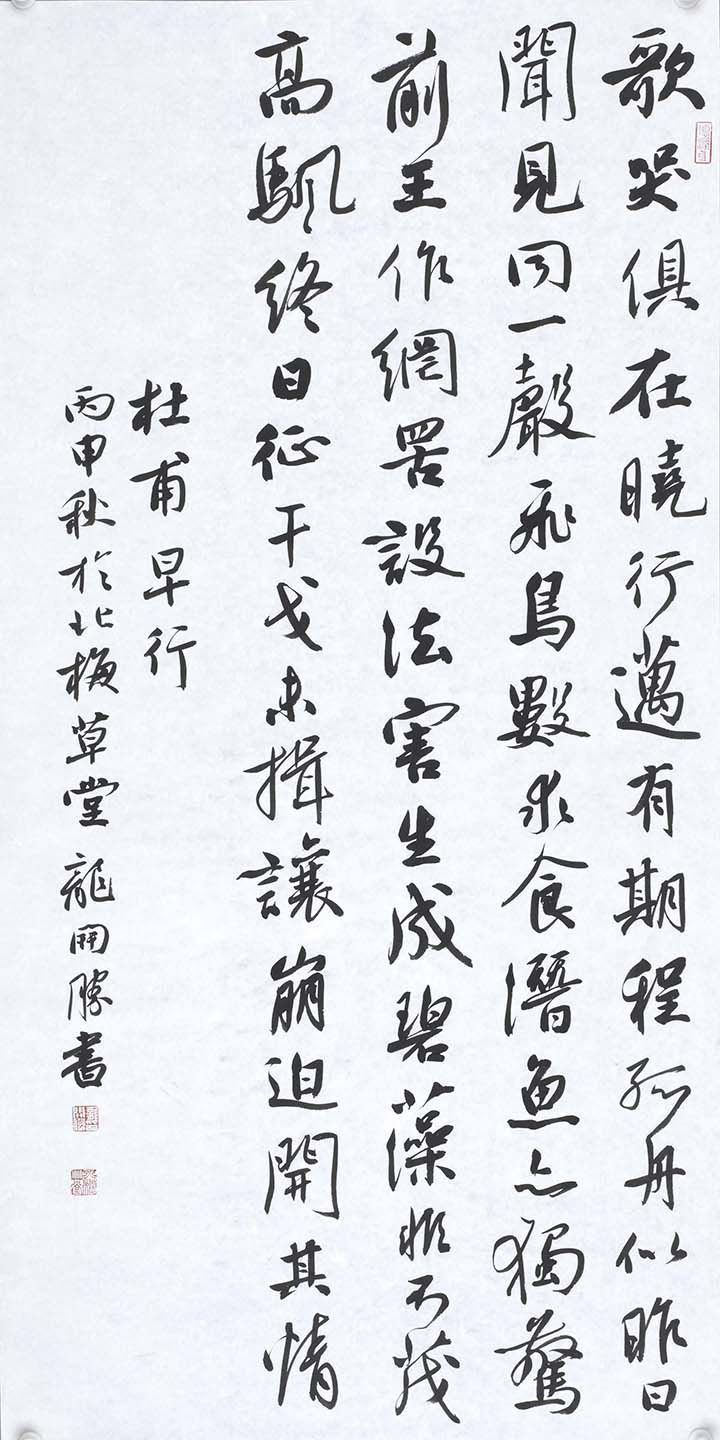 歌哭俱在曉行邁有期程孤舟似昨日
聞見同一聲飛鳥數求食潛魚亦獨驚
前王作網罟設法害生成碧藻非不茂
高颿終日征干戈未揖讓崩迫開其情
杜甫早行
丙申秋於北梅草堂龍開勝書